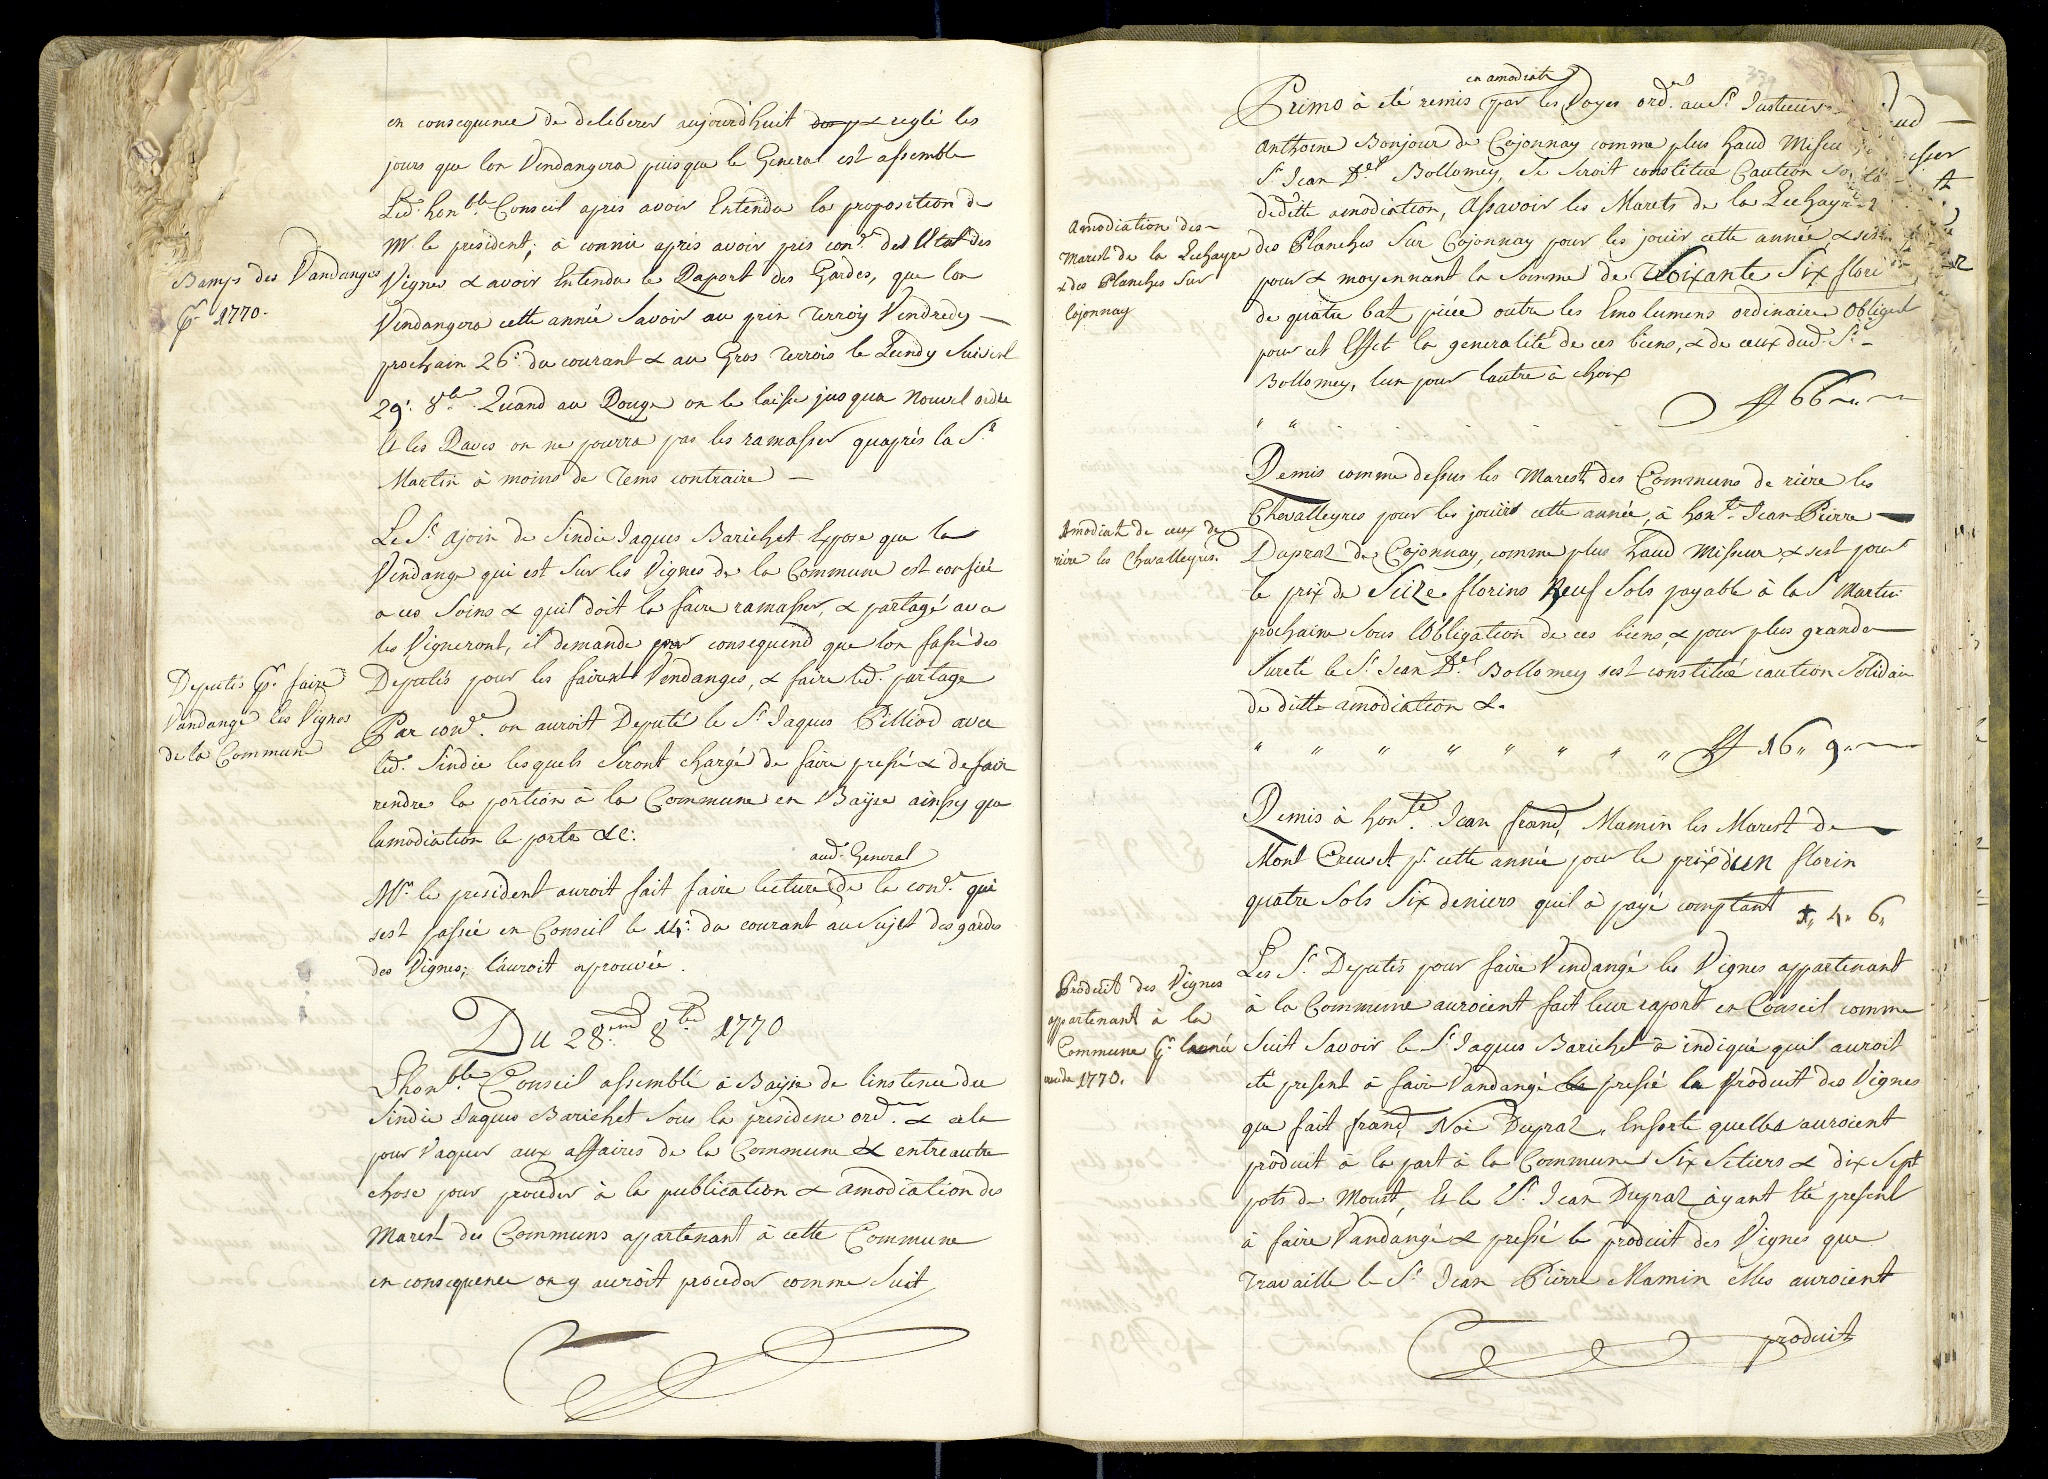 en consequence de deliberer aujourd'huit & reglé les
jours que lon Vendangera puisque le General est assemble
Led. hon.ble Conseil apres avoir Entendu la proposition de
Mr. le president; à connû apres avoir pris con.ce de l'Etat des
Vignes & avoir Entendu le Raport des Gardes, que lon
Bamps des Vandanges
pr. 1770.
Vendangera cette année Savoir au prin Terroiy Vendredy
prochain 26e. du courant & au Gros Terrois le Lundy Suivent
29e. 8bre. Quand au Rouge on le laisse jusqua Nouvel ordre
Et les Raves on ne pourra pas les ramasser quaprès la St.
Martin à moins de Tems contraire
Le Sr. ajoin de Sindic Jaques Barichet Expose que la
Vendange qui est Sur les Vignes de la Commune est confiée
a ces Soins & quil doit la faire ramasser, & partagé avec
les Vigneront, il demande par consequend que lon fasse des
Deputés pour les faire Vendanges, & faire led. partage
Deputés pr. faire
Vandangé les Vignes
de la Commune
Par con.ce. on auroit Deputé le Sr. Jaques Pilliod avec
led. Sindic lesquels Seront chargé de faire pressé & de faire
rendre la portion à la Commune en Bayse ainsy que
lamodiation le porte &c:
aud. General
Mr. le president auroit fait faire lecture de la con.ce qui
sest passée en Conseil le 14e. du courant au Sujet des gardes
des Vignes; l'auroit aprouvée.
Du 28.me 8bre 1770
Lhon.ble Conseil assemblé à Bayse de linstence du
Sindic Jaques Barichet Sous la presidence ord.re & cela
pour Vaquer aux affaires de la Commune & entreautre
chose pour proceder à la publication & amodiation des
Marest des Communs apartenant à cette Commune
en consequence on y auroit proceder comme Suit
en amodiat.
Primo à eté remis par les Voyes ord.res au Sr. Justicier
Anthoine Bonjour de Cojonnay comme plus haud Miseur
Sr. Jean D.el Bollomey, Se Seroit constitué Caution
dedette amodiation, Assavoir les Marets de la Lechayre &
Amodiation des
Marest de la Lechayre
& des Planches Sur
Cojonnay
des Planches Sur Cojonnay pour les jouir cette année, & sest
pour & moyennant la Somme de Soixante Six flori
de quatre bat piéce outre les Emolumens ordinaires Obligent
pour cet Effet la generalité de ces biens, & de ceux dud. Sr.
Bollomey, lun pour lautre à choix
ff 66 " "
Remis comme dessus les Marest des Communs de riére les
Amodiat. de ceux de
riére les Chevalleyres.
Chevalleyres pour les jouiir cette année, à hon.te Jean Pierre
Dupraz de Cojonnay, comme plus haud Misseur & sest pour
le prix de Seize florins Neuf Sols payable à la St. Martin
prochaine Sous lObligation de ces biens, & pour plus grande
Sureté le Sr. Jean D.el Bollomey sest constitué caution Solidaire
de ditte amodiation &.
" " " " " " " " ff 16 " 9 "
Remis à hon.te. Jean frand. Mamin les Marest de
Mont Creuset pr. cette année pour le prix d'un florin
quatre Sols Six deniers quil à payé comptant 1 " 4 " 6 "
Les Sr. Deputés pour faire Vendangé les Vignes appartenant
Produit des Vignes
appartenant à la
Commune pr. lannée
1770.
à la Commune auroient fait leur raport en Conseil comme
Suit Savoir le Sr. Jaques Barichet à indiqué quil auroit
eté present à faire Vandangé pressé le Produit des Vignes
que fait frand. Noé Dupraz, Ensorte quelles auroient
produit à la part à la Commune Six Setiers & dix Sept
pots de Moust, Et le Sr. Jean Dupraz àyant Eté present
à faire Vandangé & pressé le produit des Vignes que
Travaille le Sr. Jean Pierre Mamin elles auroient
produit